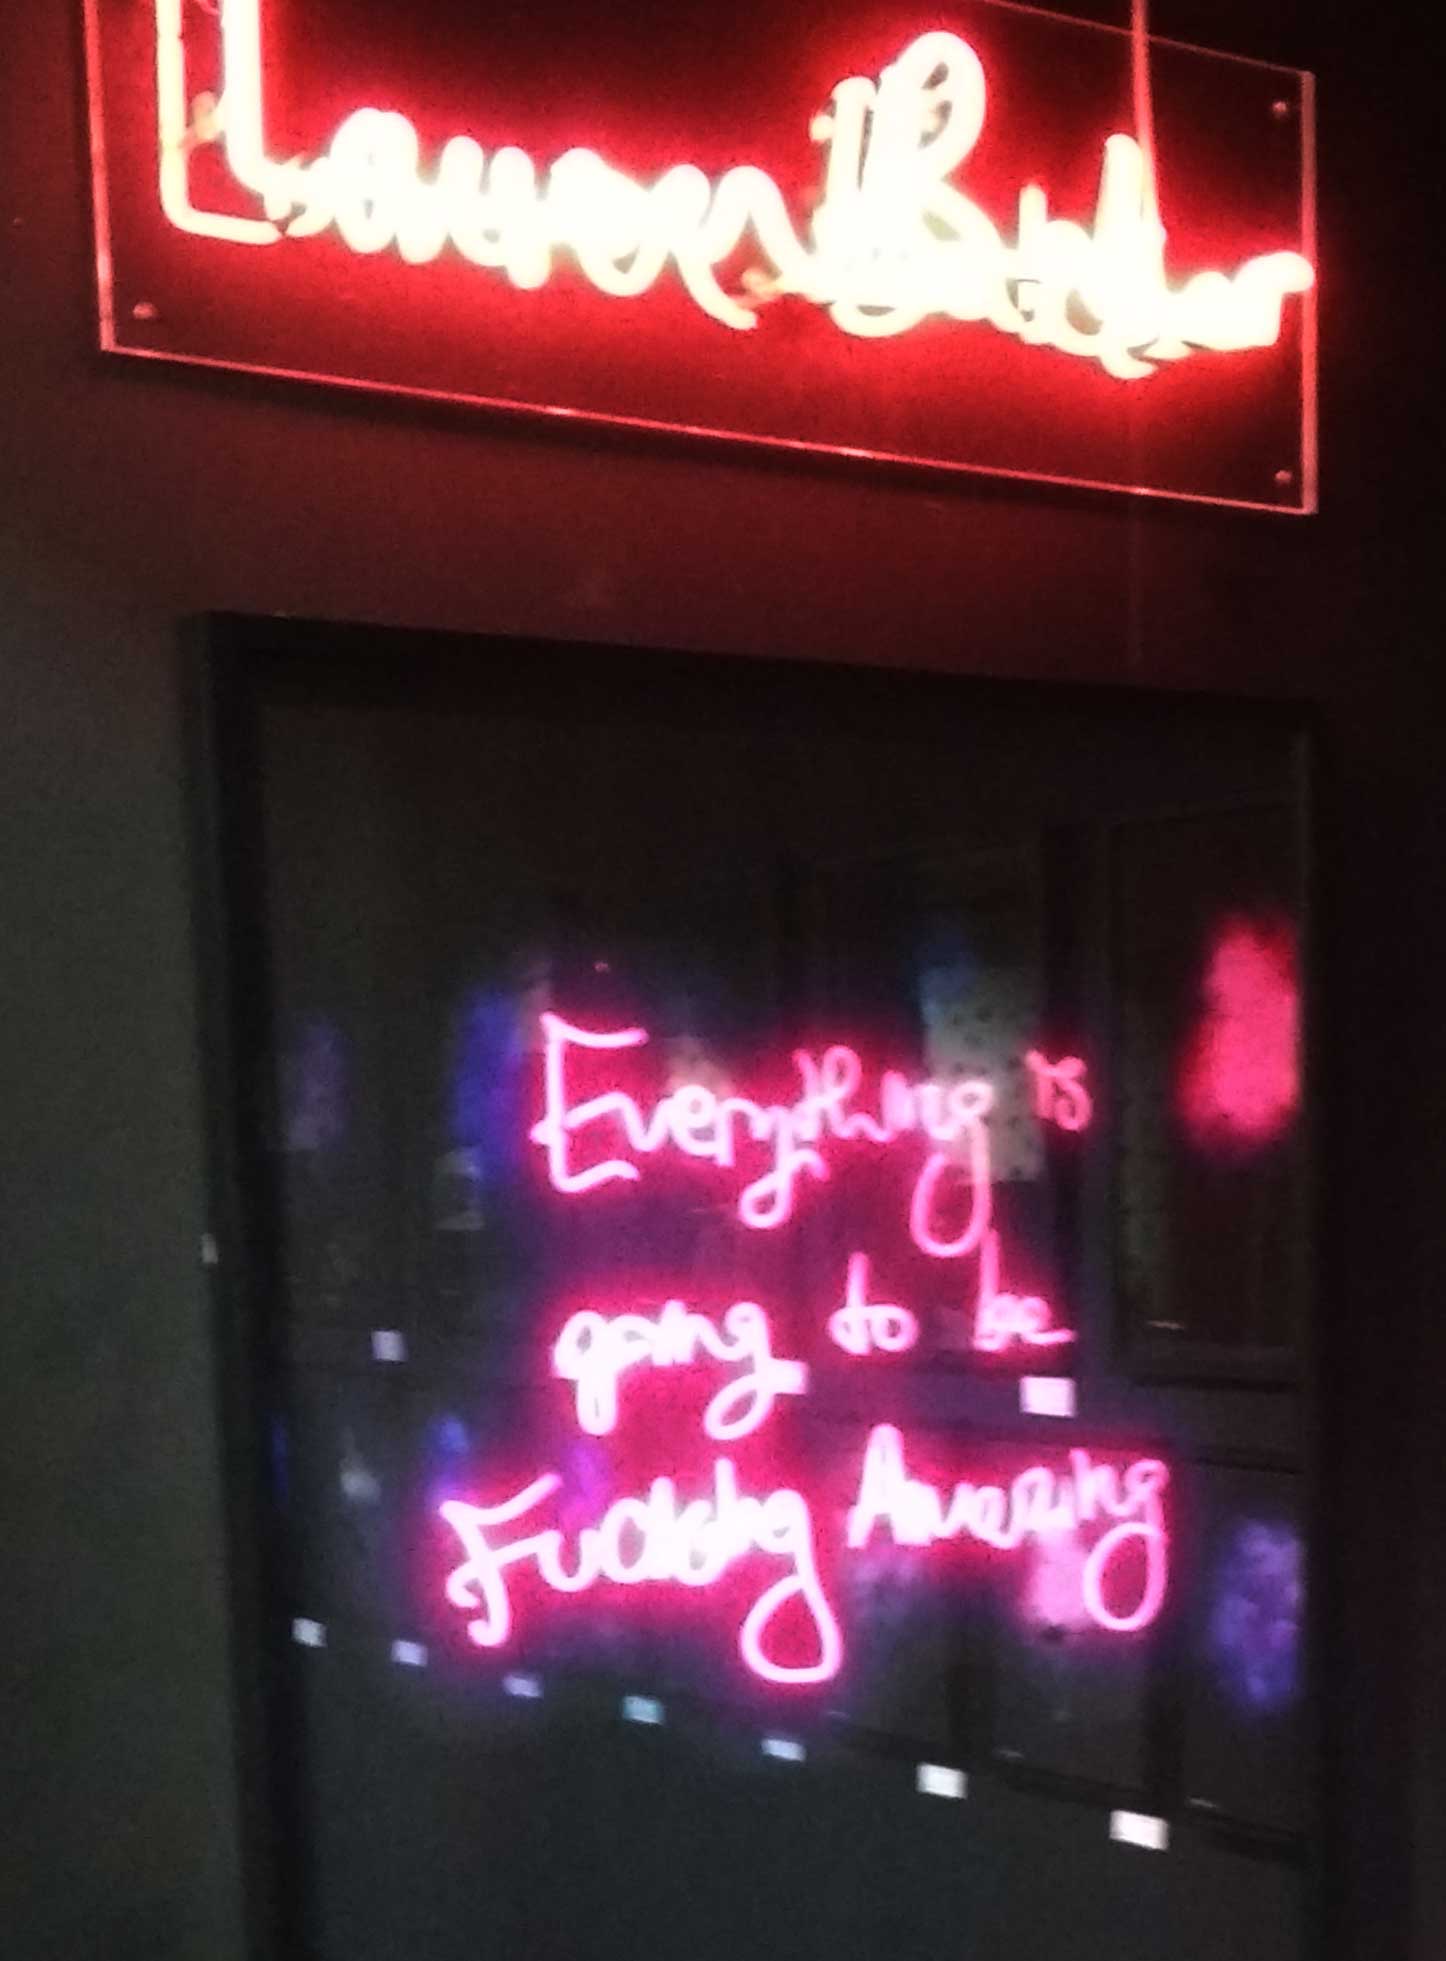 Lauren Baker
Everything is
going to be
Fucking Amazing